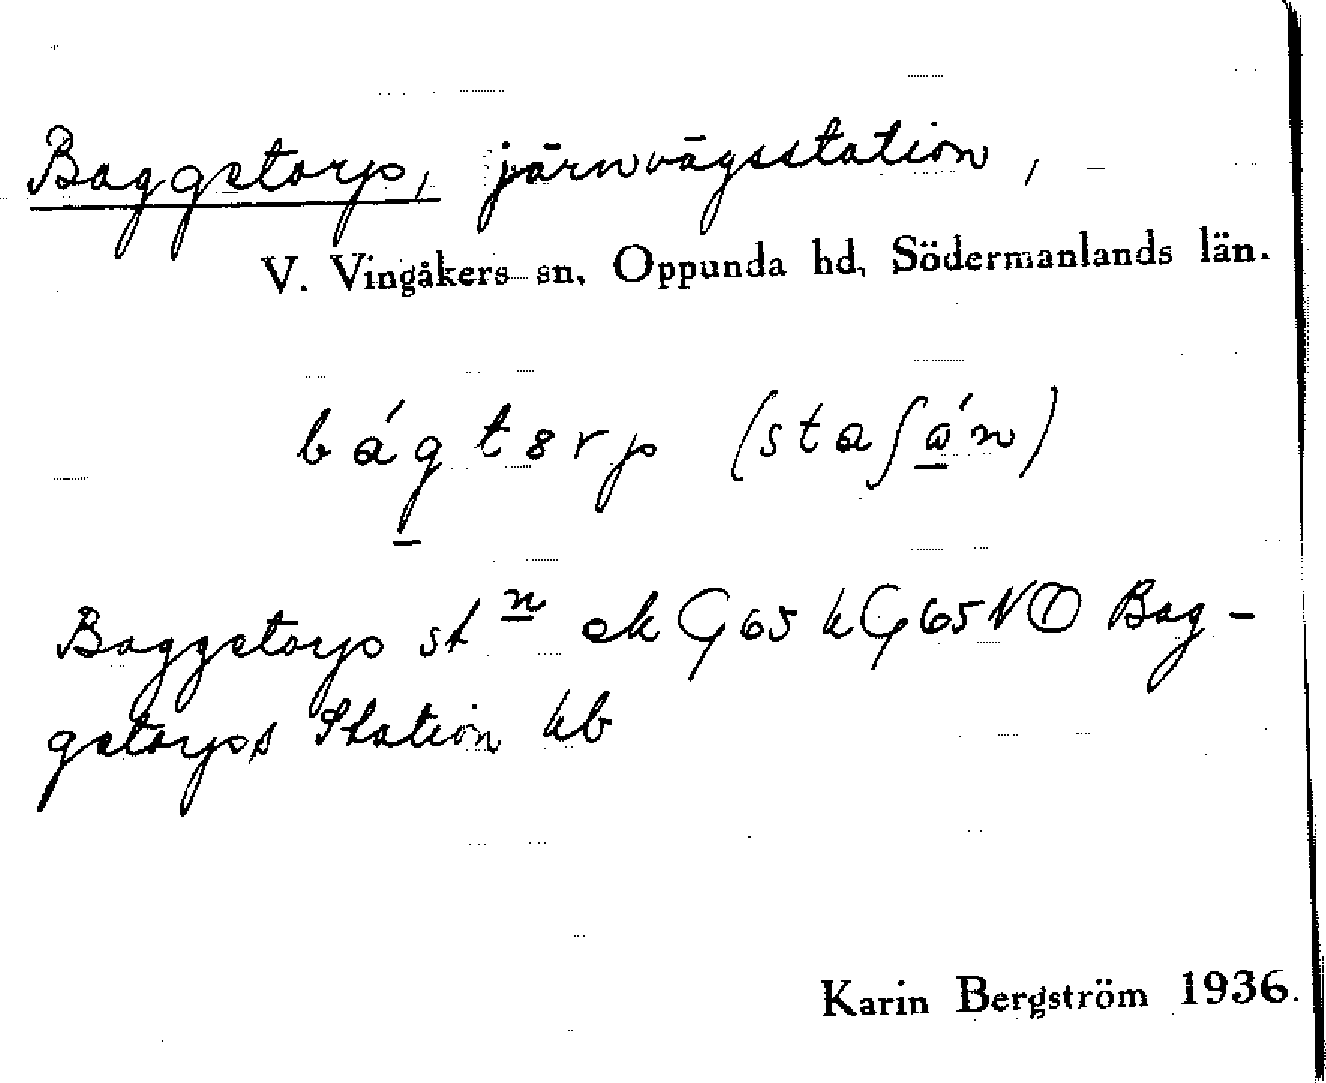 Baggetorp, järnvägsstation,
V. Vingåkers sn, Oppunda hd, Södermanlands län.
bágtɞrp (staʃán)
Baggetorp stn ek G65 kG65NO Bag-
getorps Station kb
Karin Bergström 1936.